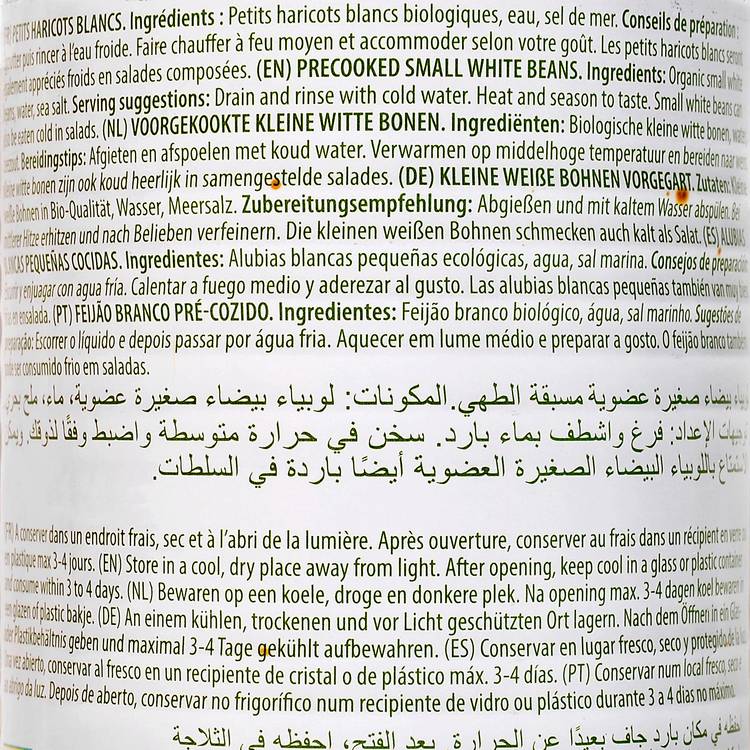 (FR) PETITS HARICOTS BLANCS. Ingrédients : Petits haricots blancs biologiques, eau, sel de mer. Conseils de préparation :
puis rincer à l'eau froide. Faire chauffer à feu moyen et accommoder selon votre goût. Les petits haricots blancs seront
également appréciés froids en salades composées. (EN) PRECOOKED SMALL WHITE BEANS. Ingredients: Organic small white
beans, water, sea salt. Serving suggestions: Drain and rinse with cold water. Heat and season to taste. Small white beans can
be eaten cold in salads. (NL) VOORGEKOOKTE KLEINE WITTE BONEN. Ingrediënten: Biologische kleine witte bonen, water,
Bereidingstips: Afgieten en afspoelen met koud water. Verwarmen op middelhoge temperatuur en bereiden naar wens
witte bonen zijn ook koud heerlijk in samengestelde salades. (DE) KLEINE WEIßE BOHNEN VORGEGART. Zutaten: Kleine
weiße Bohnen in Bio-Qualität, Wasser, Meersalz. Zubereitungsempfehlung: Abgießen und mit kaltem Wasser abspülen. Bei
mittlerer Hitze erhitzen und nach Belieben verfeinern. Die kleinen weißen Bohnen schmecken auch kalt als Salat. (ES) ALUBIAS
BLANCAS PEQUEÑAS COCIDAS. Ingredientes: Alubias blancas pequeñas ecológicas, agua, sal marina. Consejos de preparación:
y enjuagar con agua fría. Calentar a fuego medio y aderezar al gusto. Las alubias blancas pequeñas también van muy bien
en ensalada. (PT) FEIJÃO BRANCO PRÉ-COZIDO. Ingredientes: Feijão branco biológico, água, sal marinho. Sugestões de
preparação: Escorrer o líquido e depois passar por água fria. Aquecer em lume médio e preparar a gosto. O feijão branco também
pode ser consumido frio em saladas.
لوبياء بيضاء صغيرة عضوية مسبقة الطهي. المكونات: لوبياء بيضاء صغيرة عضوية، ماء، ملح بحري
توجيهات الإعداد: فرغ واشطف بماء بارد. سخن في حرارة متوسطة واضبط وفقًا لذوقك. ويمكن
الاستمتاع باللوبياء البيضاء الصغيرة العضوية أيضًا باردة في السلطات.
(FR) A conserver dans un endroit frais, sec et à l'abri de la lumière. Après ouverture, conserver au frais dans un récipient en verre ou
en plastique max 3-4 jours. (EN) Store in a cool, dry place away from light. After opening, keep cool in a glass or plastic container
and consume within 3 to 4 days. (NL) Bewaren op een koele, droge en donkere plek. Na opening max. 3-4 dagen koel bewaren in
een glazen of plastic bakje. (DE) An einem kühlen, trockenen und vor Licht geschützten Ort lagern. Nach dem Öffnen in ein Glas-
oder Plastikbehältnis geben und maximal 3-4 Tage gekühlt aufbewahren. (ES) Conservar en lugar fresco, seco y protegido de la luz.
Una vez abierto, conservar al fresco en un recipiente de cristal o de plástico máx. 3-4 días. (PT) Conservar num local fresco, seco e
ao abrigo da luz. Depois de aberto, conservar no frigorífico num recipiente de vidro ou plástico durante 3 a 4 dias no máximo.
احفظه في مكان بارد جاف بعيدًا عن الحرارة. بعد الفتح، احفظه في الثلاجة